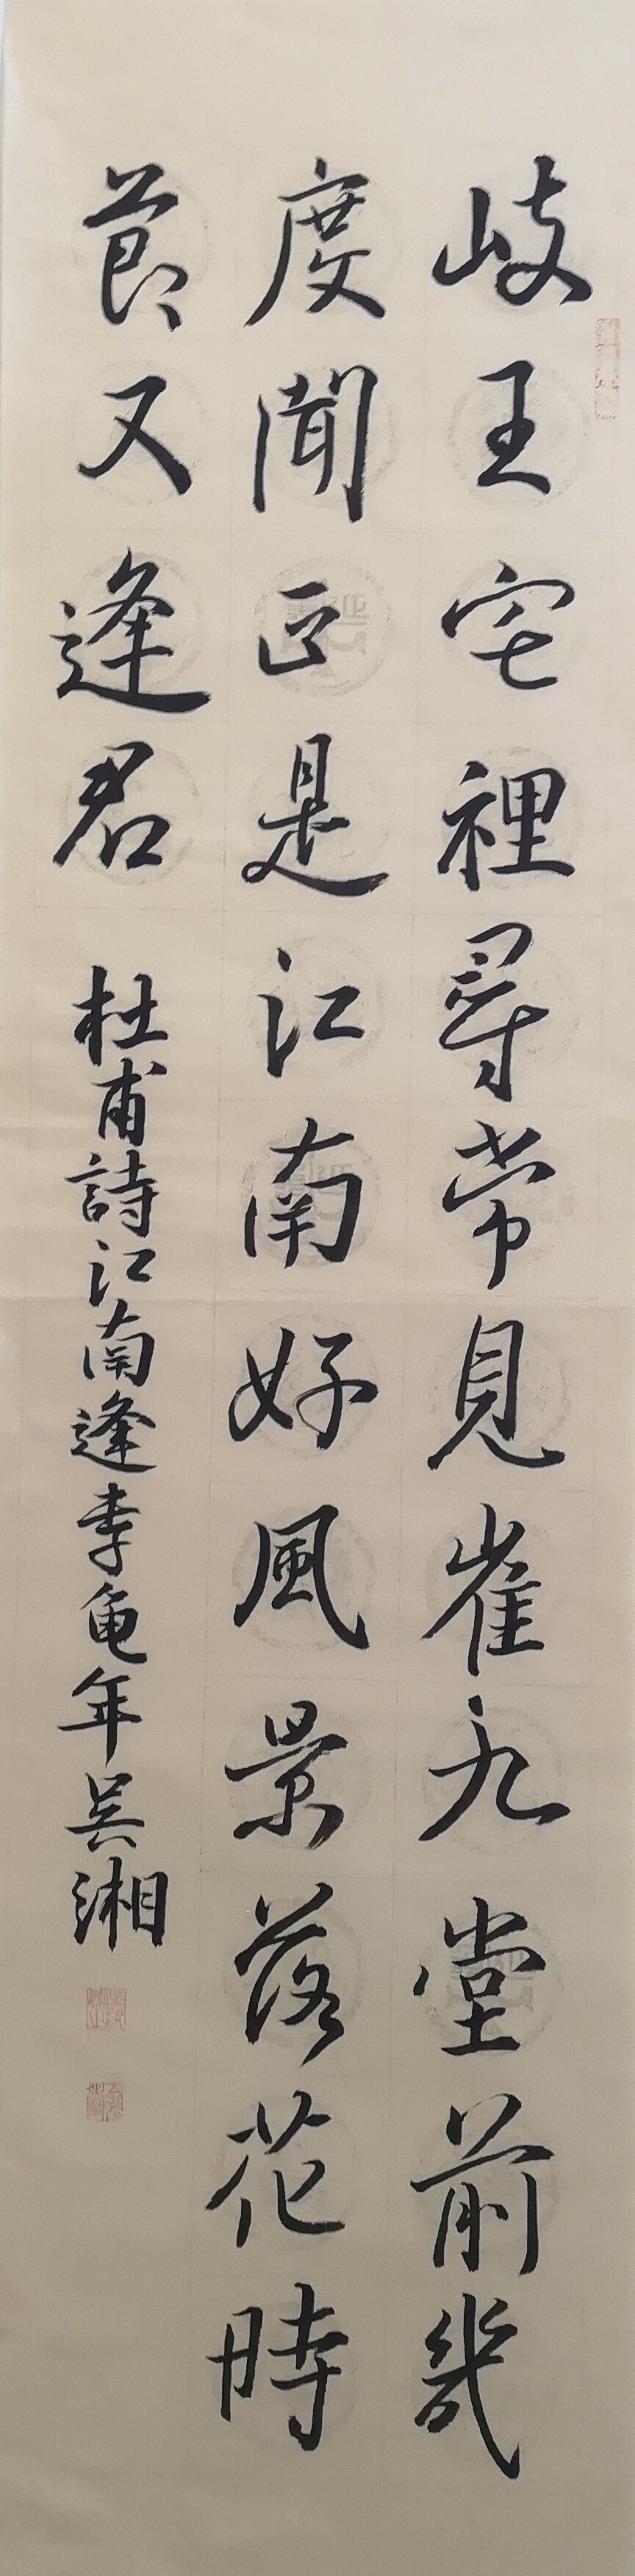 岐王宅裡尋常見崔九堂前幾
度聞正是江南好風景落花時
節又逢君
杜甫詩江南逢李龟年吴湘